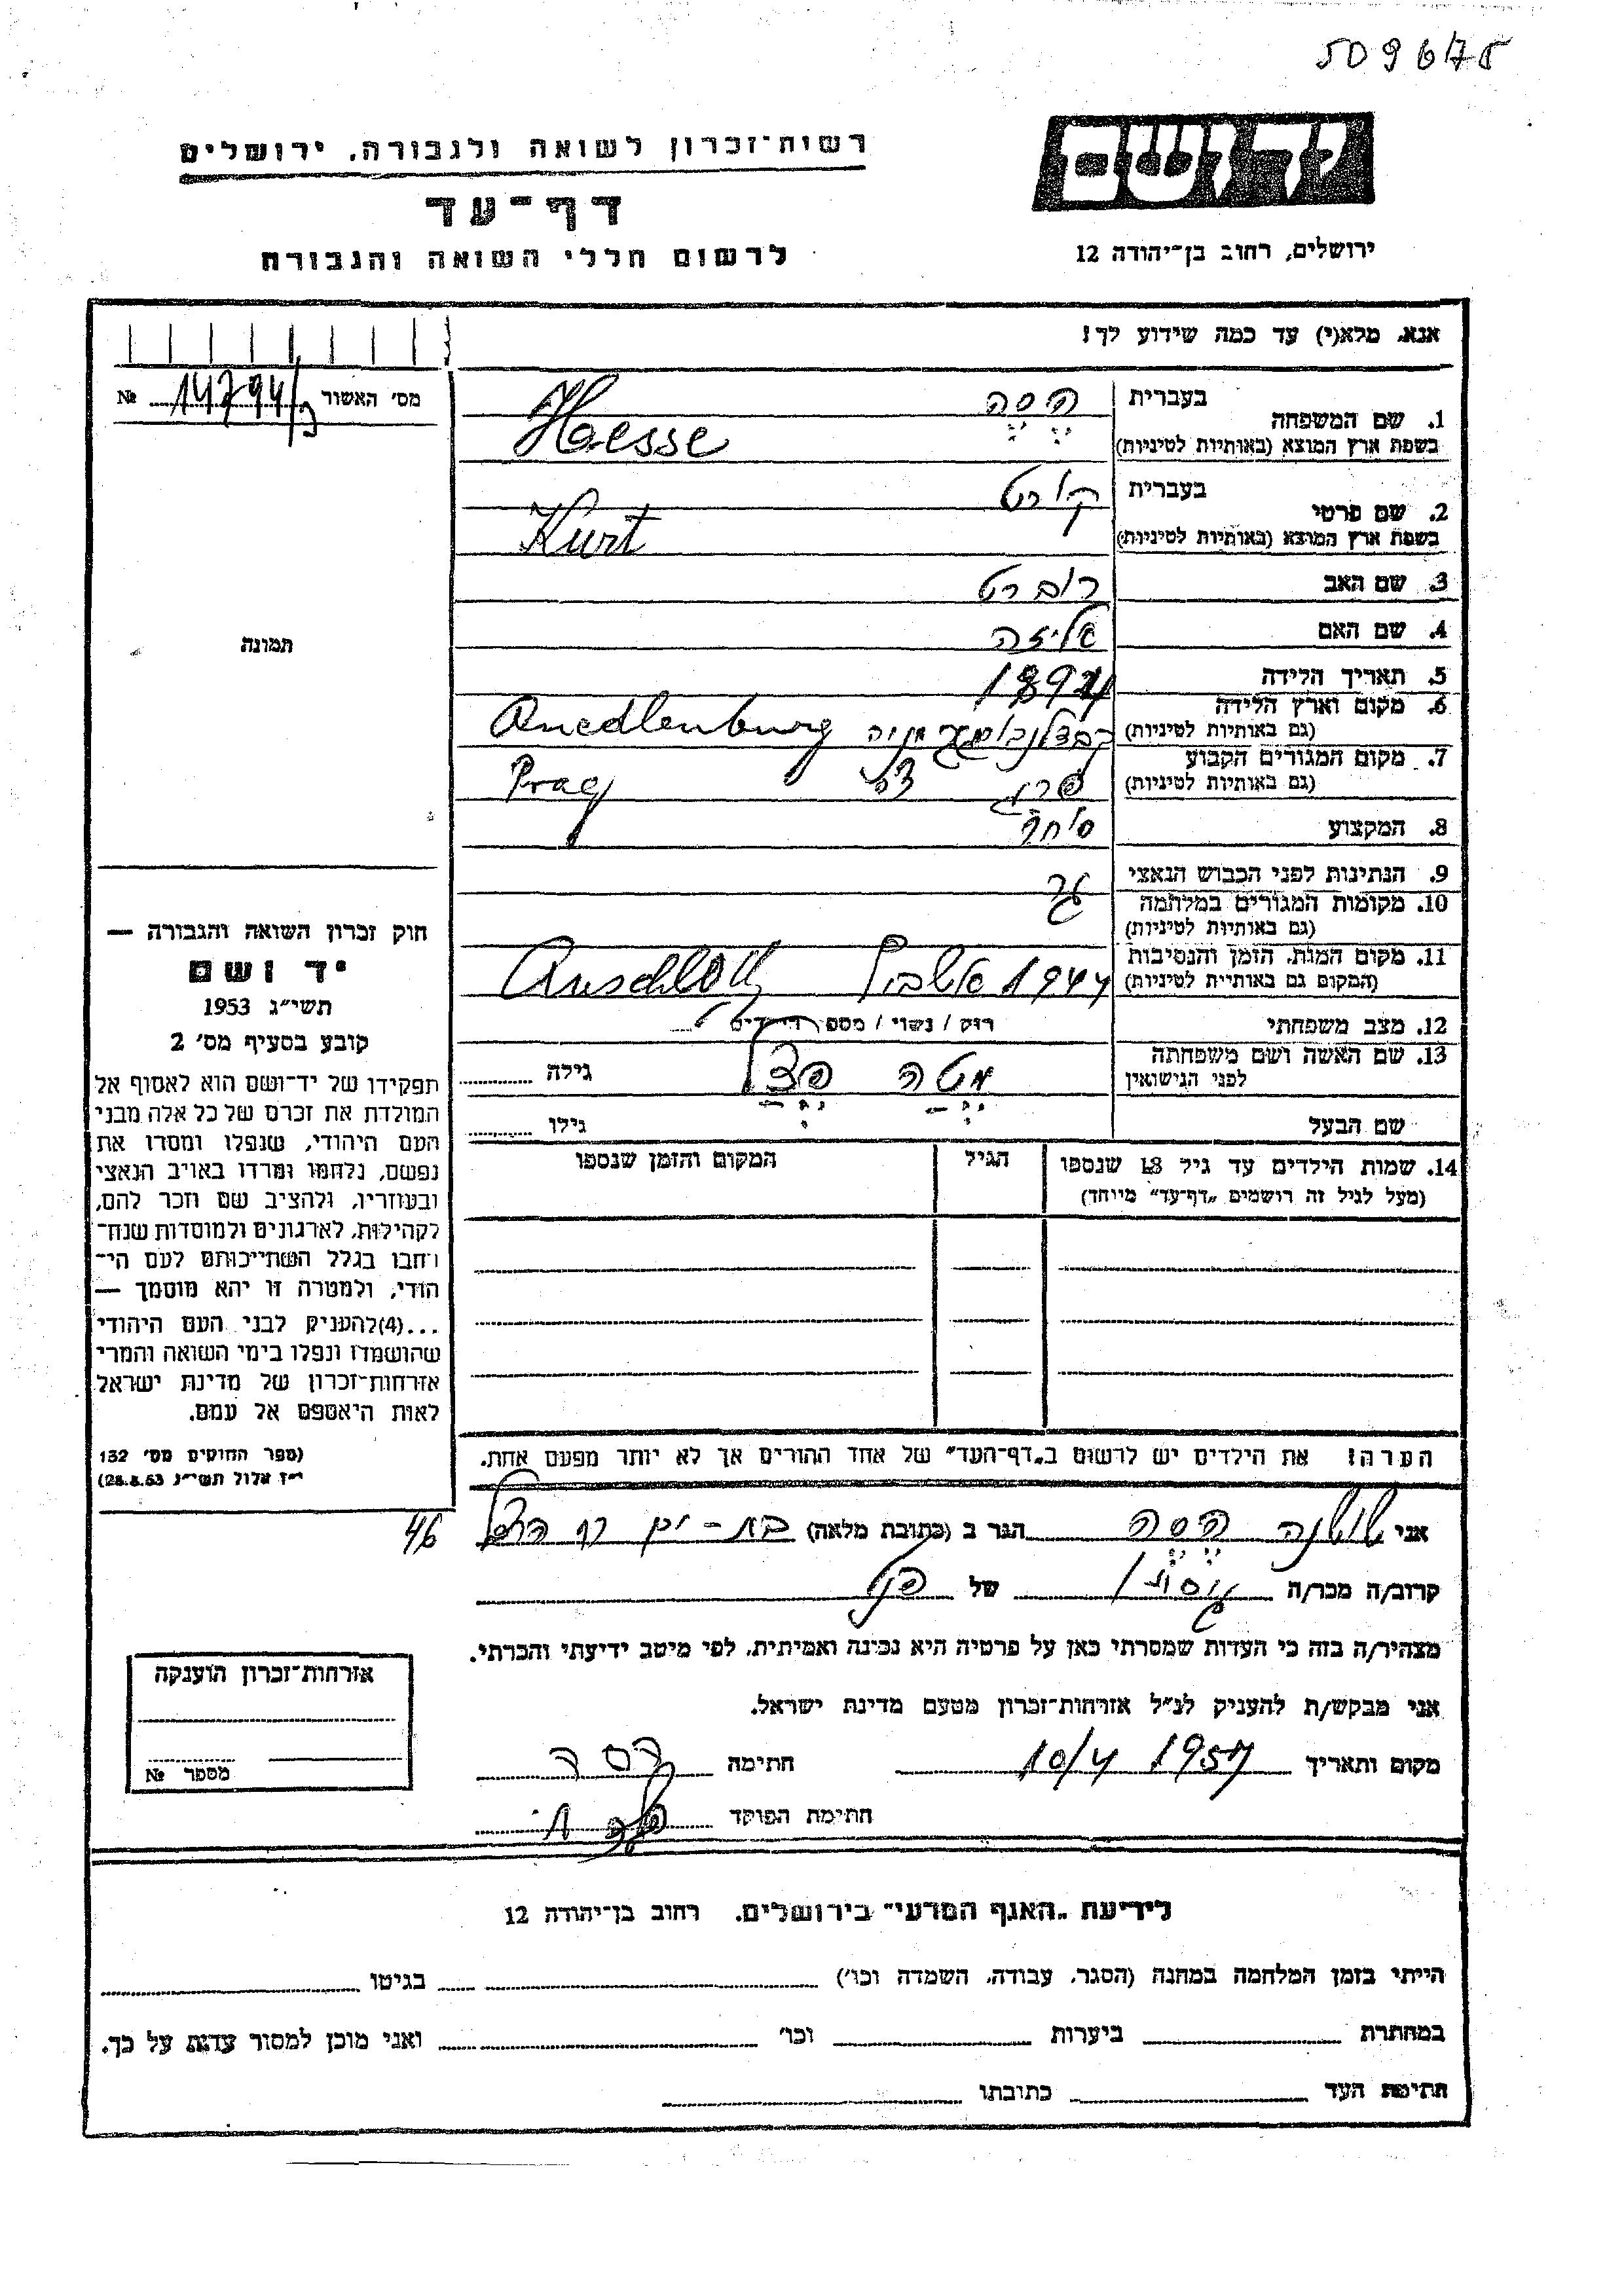 509678
יד ושם
רשות־זכרון לשואה ולגבורה, ירושלים
דף־עד
לרשום חללי השואה והגבורה
ירושלים, רחוב בן־יהודה 12
אנא, מלא(י) עד כמה שידוע לך!
מס׳ האשור № 14794/
1. שם המשפחה בעברית הֶסֶה
בשפת ארץ המוצא (באותיות לטיניות) Haesse
2. שם פרטי בעברית קורט
בשפת ארץ המוצא (באותיות לטיניות) Kurt
3. שם האב רוברט
4. שם האם עליזה
5. תאריך הלידה
6. מקום וארץ הלידה
(גם באותיות לטיניות) Quedlenburg
7. מקום המגורים הקבוע פרג צ׳
(גם באותיות לטיניות) Prag
8. המקצוע סוחר
9. הנתינות לפני הכבוש הנאצי
10. מקומות המגורים במלחמה
(גם באותיות לטיניות)
11. מקום המות, הזמן והנסיבות 1944
(המקום גם באותיות לטיניות)
12. מצב משפחתי רוק / נשוי / מספר הילדים
13. שם האשה ושם משפחתה
לפני הנישואין גילה
שם הבעל גילו
14. שמות הילדים עד גיל 18 שנספו הגיל המקום והזמן שנספו
(מעל לגיל זה רושמים „דף־עד״ מיוחד)
הערה! את הילדים יש לרשום ב„דף־העד״ של אחד ההורים אך לא יותר מפעם אחת.
תמונה
חוק זכרון השואה והגבורה —
יד ושם
תשי״ג 1953
קובע בסעיף מס׳ 2
תפקידו של יד־ושם הוא לאסוף אל
המולדת את זכרם של כל אלה מבני
העם היהודי, שנפלו ומסרו את
נפשם, נלחמו ומרדו באויב הנאצי
ובעוזריו, ולהציב שם וזכר להם,
לקהילות, לארגונים ולמוסדות שנח־
רבו בגלל השתייכותם לעם הי־
הודי, ולמטרה זו יהא מוסמך —
...(4)להעניק לבני העם היהודי
שהושמדו ונפלו בימי השואה והמרי
אזרחות־זכרון של מדינת ישראל
לאות היאספם אל עמם.
(ספר החוקים מס׳ 132
י״ז אלול תשי״ג 28.8.53)
אני שושנה הֶסֶה הגר ב (כתובת מלאה) בת-ים רח הרצל 46
קרוב/ה מכר/ה של
מצהיר/ה בזה כי העדות שמסרתי כאן על פרטיה היא נכונה ואמיתית, לפי מיטב ידיעתי והכרתי.
אני מבקש/ת להעניק לנ״ל אזרחות־זכרון מטעם מדינת ישראל.
מקום ותאריך 10/4 1957 חתימה הסה
חתימת הפוקד
אזרחות־זכרון הוענקה
מספר №
לידיעת „האגף המדעי״ בירושלים, רחוב בן־יהודה 12
הייתי בזמן המלחמה במחנה (הסגר, עבודה, השמדה וכו׳) בגיטו
במחתרת ביערות וכו׳ ואני מוכן למסור עדות על כך.
חתימת העד כתובתו